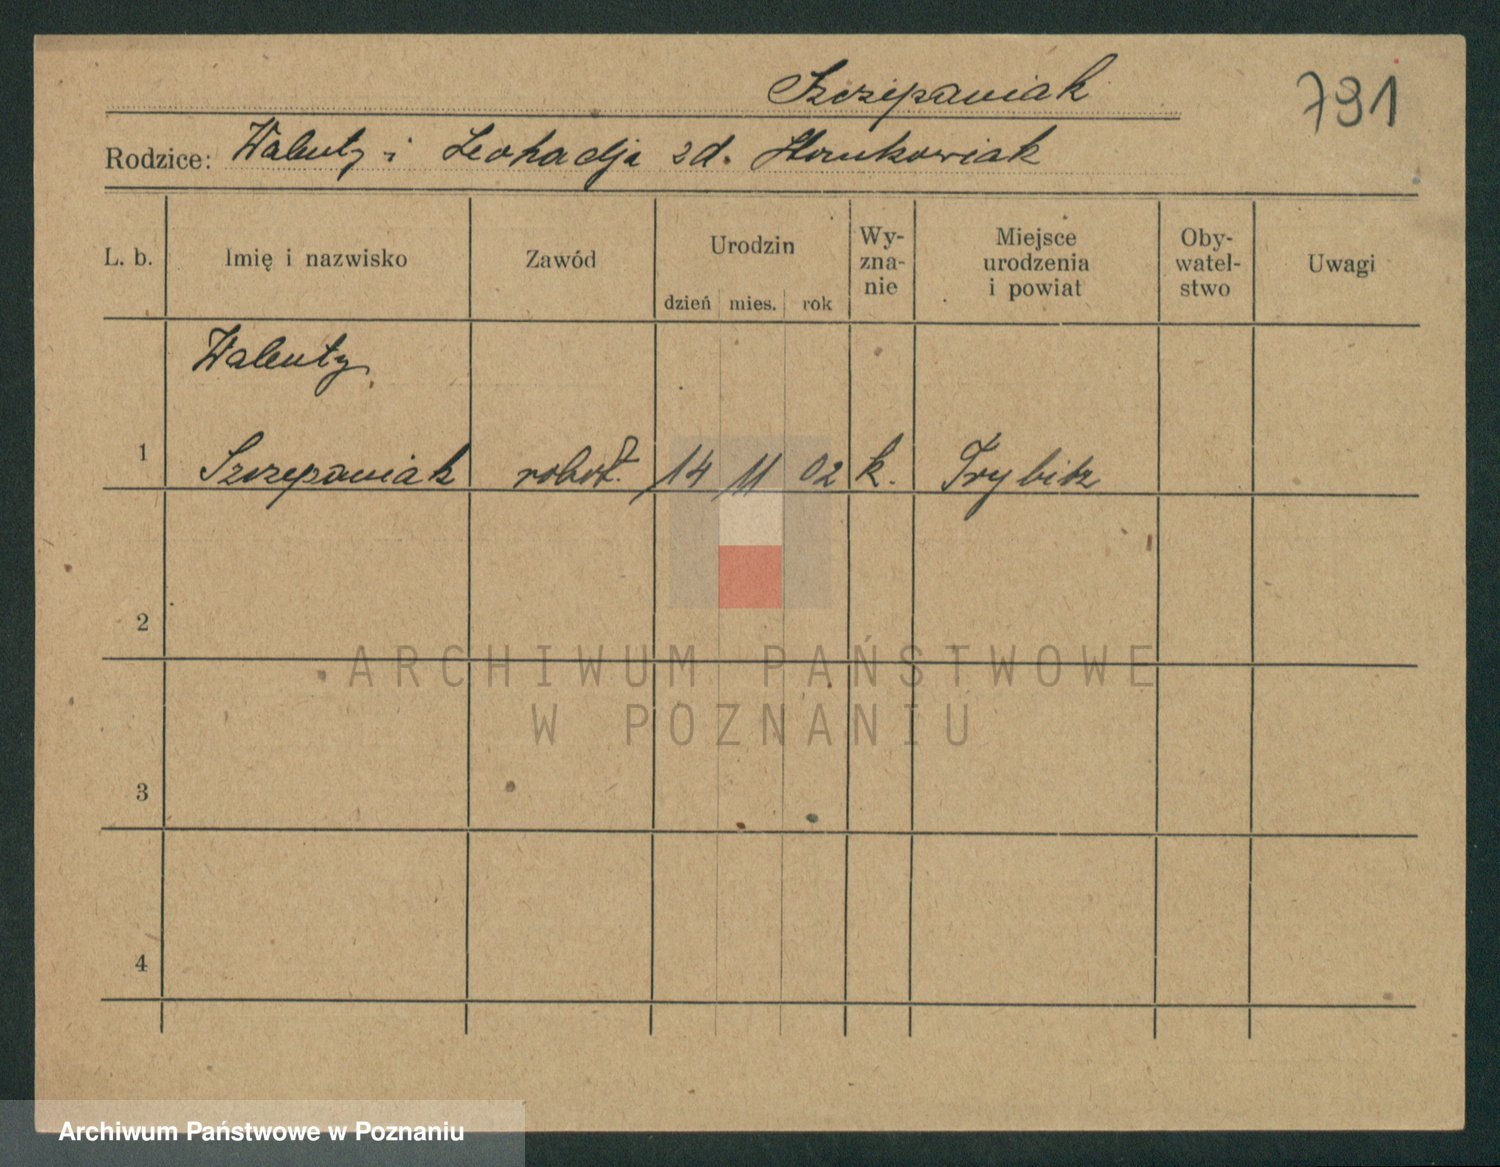 Szczepaniak
791
Rodzice: Walenty i Leokadja zd.
L. b. Imię i nazwisko Zawód Urodzin Wy-zna-nie Miejsce urodzenia i powiat Oby-watel-stwo Uwagi
dzień mies. rok
Walenty
1 Szczepaniak robot. 14 11 02 k.
2
3
4
ARCHIWUM PAŃSTWOWE
W POZNANIU
Archiwum Państwowe w Poznaniu